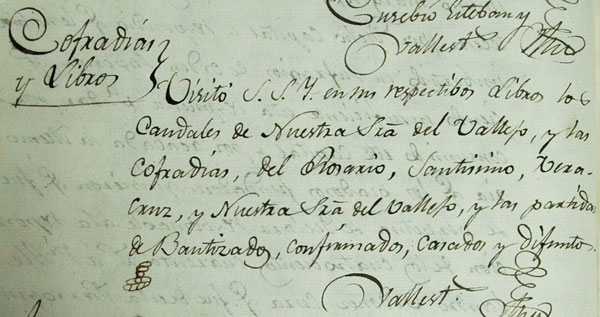 Eusebio Esteban y
Vallest.
Cofradías
y Libros
Visitó S. S. Y. en sus respectibos Libros los
Caudales de Nuestra Srã del Vallejo, y las
Cofradías, del Rosario, Santisimo, Vera-
cruz, y Nuestra Srã del Vallejo, y las partidas
de Bautizados, confirmados, Casados y difuntos.
Vallest.